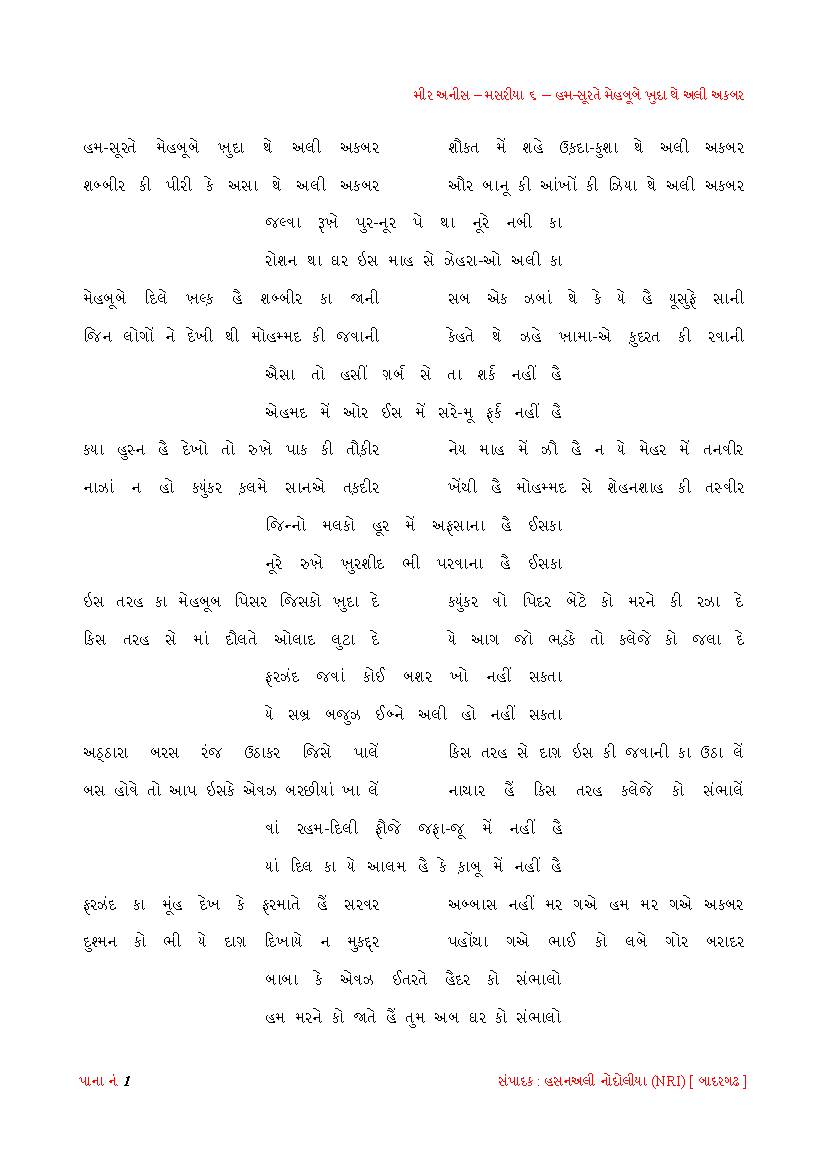 મીર અનીસ – મસરીયા ૬ – હમ-સૂરતે મેહબૂબે ખ઼ુદા થે અલી અકબર
હમ-સૂરતે મેહબૂબે ખ઼ુદા થે અલી અકબર શૌકત મેં શહે ઉક઼દા-કુશા થે અલી અકબર
શબ્બીર કી પીરી કે અસા થે અલી અકબર ઔર બાનૂ કી આંખોં કી ઝિયા થે અલી અકબર
જલ્વા રૂખ઼ે પુર-નૂર પે થા નૂરે નબી કા
રોશન થા ઘર ઇસ માહ સે ઝેહરા-ઓ અલી કા
મેહબૂબે દિલે ખ઼લ્ક઼ હૈ શબ્બીર કા જાની સબ એક ઝબાં થે કે યે હૈ યૂસુફ઼ે સાની
જિન લોગોં ને દેખી થી મોહમ્મદ કી જવાની કેહતે થે ઝહે ખ઼ામા-એ ક઼ુદરત કી રવાની
ઐસા તો હસીં ગ઼ર્બ સે તા શર્ક઼ નહીં હૈ
એહમદ મેં ઓર ઈસ મેં સરે-મૂ ફ઼ર્ક઼ નહીં હૈ
ક્યા હુસ્ન હૈ દેખો તો રુખ઼ે પાક કી તૌક઼ીર નેય માહ મેં ઝૌ હૈ ન યે મેહર મેં તનવીર
નાઝાં ન હો ક્યુંકર ક઼લમે સાનએ તક઼દીર ખેંચી હૈ મોહમ્મદ સે શેહનશાહ કી તસ્વીર
જિન્નો મલકો હૂર મેં અફ઼સાના હૈ ઈસકા
નૂરે રુખ઼ે ખ઼ુરશીદ ભી પરવાના હૈ ઈસકા
ઇસ તરહ કા મેહબૂબ પિસર જિસકો ખ઼ુદા દે ક્યુંકર વો પિદર બેટે કો મરને કી રઝા દે
કિસ તરહ સે માં દૌલતે ઓલાદ લુટા દે યે આગ જો ભડ઼કે તો કલેજે કો જલા દે
ફ઼રઝંદ જવાં કોઈ બશર ખો નહીં સકતા
યે સબ્ર બજુઝ ઈબ્ને અલી હો નહીં સકતા
અઠ્ઠારા બરસ રંજ ઉઠાકર જિસે પાલેં કિસ તરહ સે દાગ઼ ઇસ કી જવાની કા ઉઠા લેં
બસ હોવે તો આપ ઇસકે એવઝ બરછીયાં ખા લેં નાચાર હૈં કિસ તરહ કલેજે કો સંભાલેં
વાં રહમ-દિલી ફ઼ૌજે જફ઼ા-જૂ મેં નહીં હૈ
યાં દિલ કા યે આલમ હૈ કે ક઼ાબૂ મેં નહીં હૈ
ફ઼રઝંદ કા મૂંહ દેખ કે ફ઼રમાતે હૈં સરવર અબ્બાસ નહીં મર ગએ હમ મર ગએ અકબર
દુશ્મન કો ભી યે દાગ઼ દિખાયે ન મુક઼દ્દર પહોંચા ગએ ભાઈ કો લબે ગોર બરાદર
બાબા કે એવઝ ઈતરતે હૈદર કો સંભાલો
હમ મરને કો જાતે હૈં તુમ અબ ઘર કો સંભાલો
પાના નં. 1 સંપાદક : હસનઅલી નોદોલીયા (NRI) [ બાદરગઢ ]